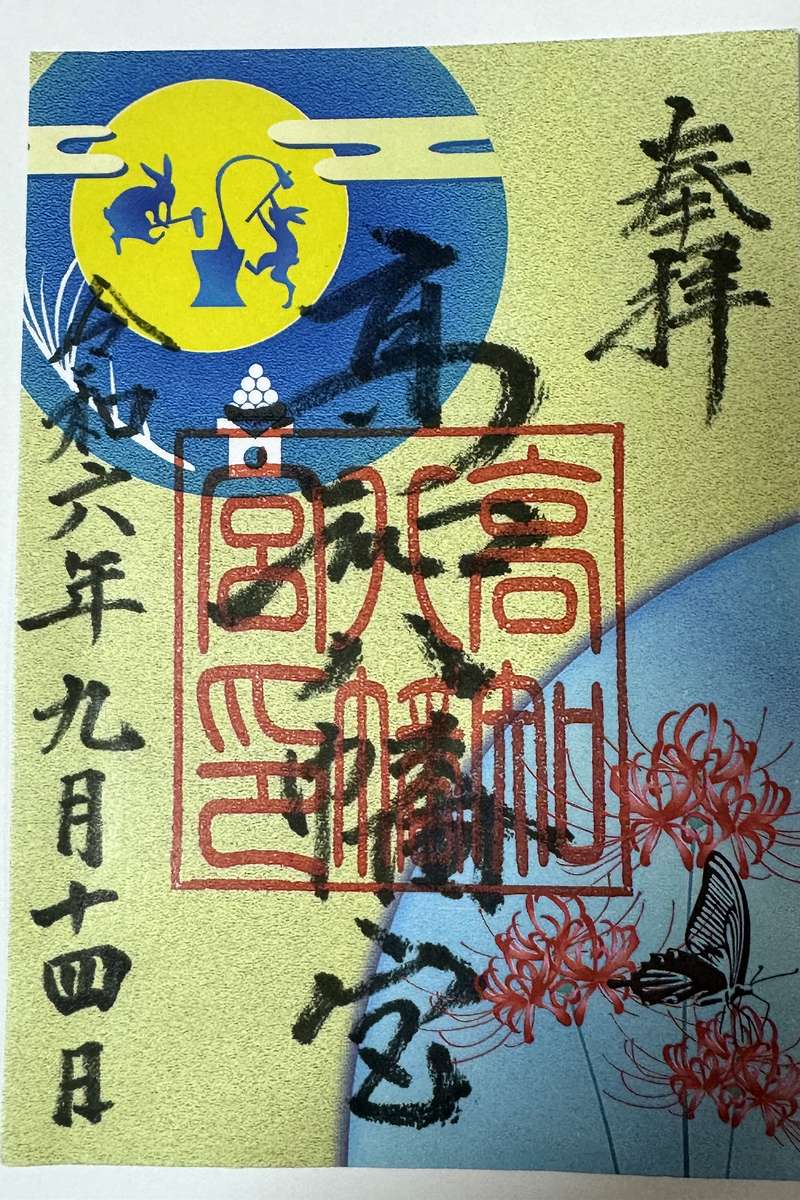 奉拝
高知八幡宮
令和六年九月十四日
高知
八幡
宮印